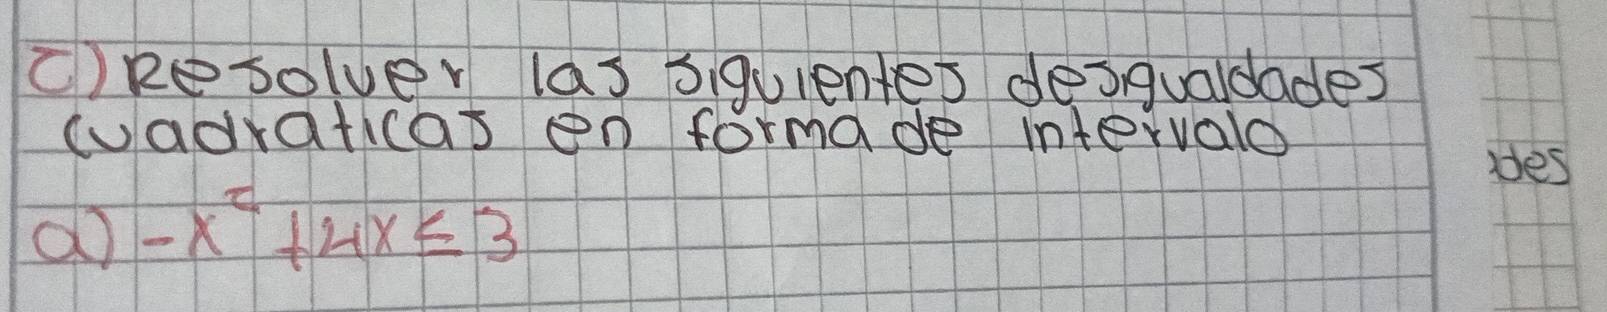 c) Resolver las siguientes desigualdades
cuadraticas en forma de intervalo
des
a) -x² + 4x ≤ 3